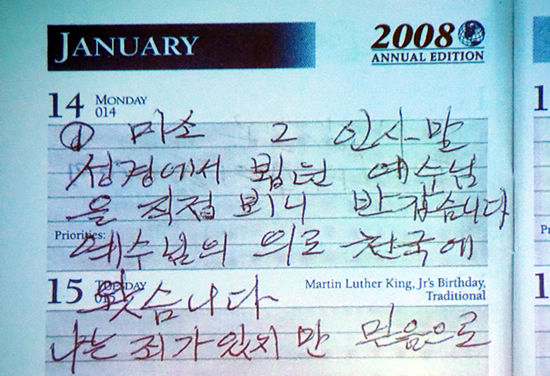 JANUARY
2008
ANNUAL EDITION
14 MONDAY
014
① 미소 2 인사말
성경에서 뵙던 예수님
을 직접 뵈니 반갑습니다
Priorities:
예수님의 의로 천국에
15 TUESDAY
왔습니다
Martin Luther King, Jr's Birthday,
Traditional
나는 죄가 있지만 믿음으로